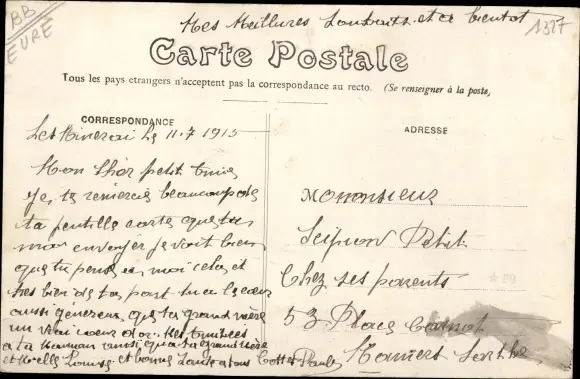 BB
EURE
1327
Mes Meillures Souhaits et a bientot
Carte Postale
Tous les pays etrangers n'acceptent pas la correspondance au recto. (Se renseigner à la poste,
CORRESPONDANCE
ADRESSE
Le 11.7.1915
Mon Cher petit
Je te remercie beaucoup de
ta gentille carte que tu
envoyer je voit bien
que tu pense a moi cela et
tres bien de ta part tu a le cœur
aussi génereux que ta grand mère
un vrai cœur d'or. Mes
a ta Maman aussi qua ta grand mère
et Melle Louise et bonne Santé a tous
Monsieur
Scipion Petit
Chez ses parents
53 Place Carnot
Mamers Sarthe